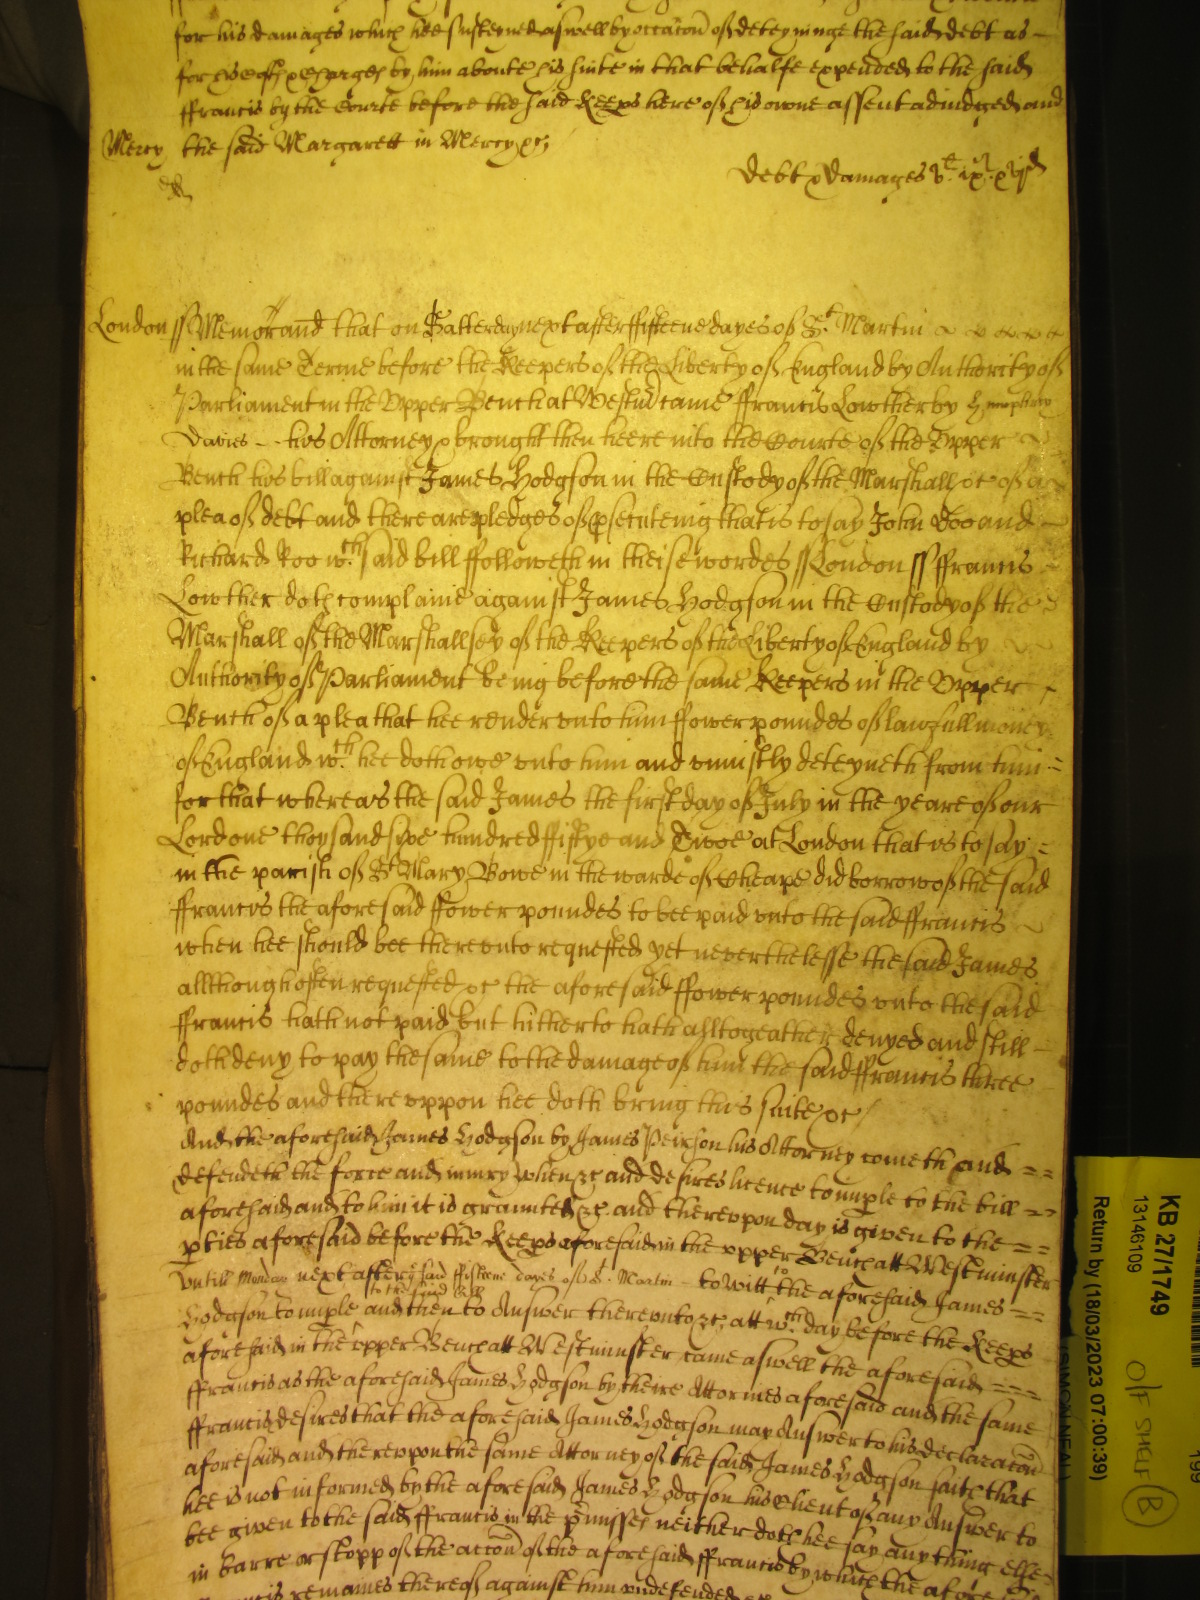 for his damages which hee susteyned aswell by occacõn of deteyninge the said debt as
for his costs & charges by him aboute his suite in that behalfe expended to the said
ffrancis by the Courte before the said Keeps here of his owne assent adiudged and
Mercy the said Margarett in Mercy &c
debt & damages
London ss Memorand that on Satterday next after fifteene dayes of St Martin
in the same Terme before the Keepers of the Liberty of England by Authority of
Parliament in the Upper Bench at Westm came ffrancis Lowther by Humphrey
Davies his Attorney & brought then heere into the Courte of the Upper
Bench his bill against James Hodgson in the Custody of the Marshall &c of a
plea of debt and there are pledges of psecuteing that is to say John Doo and
Richard Roo wch said bill ffolloweth in theise wordes ss London ss ffrancis
Lowther doth complaine against James Hodgson in the Custody of the
Marshall of the Marshallsey of the Keepers of the Liberty of England by
Authority of Parliament being before the same Keepers in the Upper
Bench of a plea that hee render unto him ffower poundes of lawfull money
of England wch hee doth owe unto him and uniustly deteyneth from him
for that whereas the said James the first day of July in the yeare of our
Lord one thousand sixe hundred ffiftye and Twoe at London that is to say
in the parish of St Mary Bowe in the warde of Cheape did borrow of the said
ffrancis the aforesaid ffower poundes to bee paid unto the said ffrancis
when hee should bee thereunto requested yet neverthelesse the said James
allthough often requested &c the aforesaid ffower poundes unto the said
ffrancis hath not paid but hitherto hath alltogeather denyed and still
doth deny to pay the same to the damage of him the said ffrancis three
poundes and thereuppon hee doth bring this suite &c
And the aforesaid James Hodgson by James Peirson his Attorney cometh and
defendeth the force and iniury when &c and desires licence to imple to the bill
aforesaid and to him it is graunted &c and thereupon day is given to the
pties aforesaid before the Keeps aforesaid in the upper Bench att Westminster
untill Monday next after ye said fifteene dayes of St Martin to witt to the aforesaid James
to the said bill
Hodgson to imple and then to Answer thereunto &c att wch day before the Keeps
aforesaid in the upper Bench att Westminster came aswell the aforesaid
ffrancis as the aforesaid James Hodgson by theire Attornies aforesaid and the same
ffrancis desires that the aforesaid James Hodgson may Answer to his declaracõn
aforesaid and thereupon the same Attorney of the said James Hodgson saith that
hee is not informed by the aforesaid James Hodgson his Client of any Answer to
bee given to the said ffrancis in the pmisses neither doth hee say any thing else
in barre or stopp of the accõn of the aforesaid ffrancis by which the afore
remaines thereof against him undefended
KB 27/1749
13146109
Return by (18/03/2023 07:00:39)
(SIMON NEAL)
O/F SHELF B
199